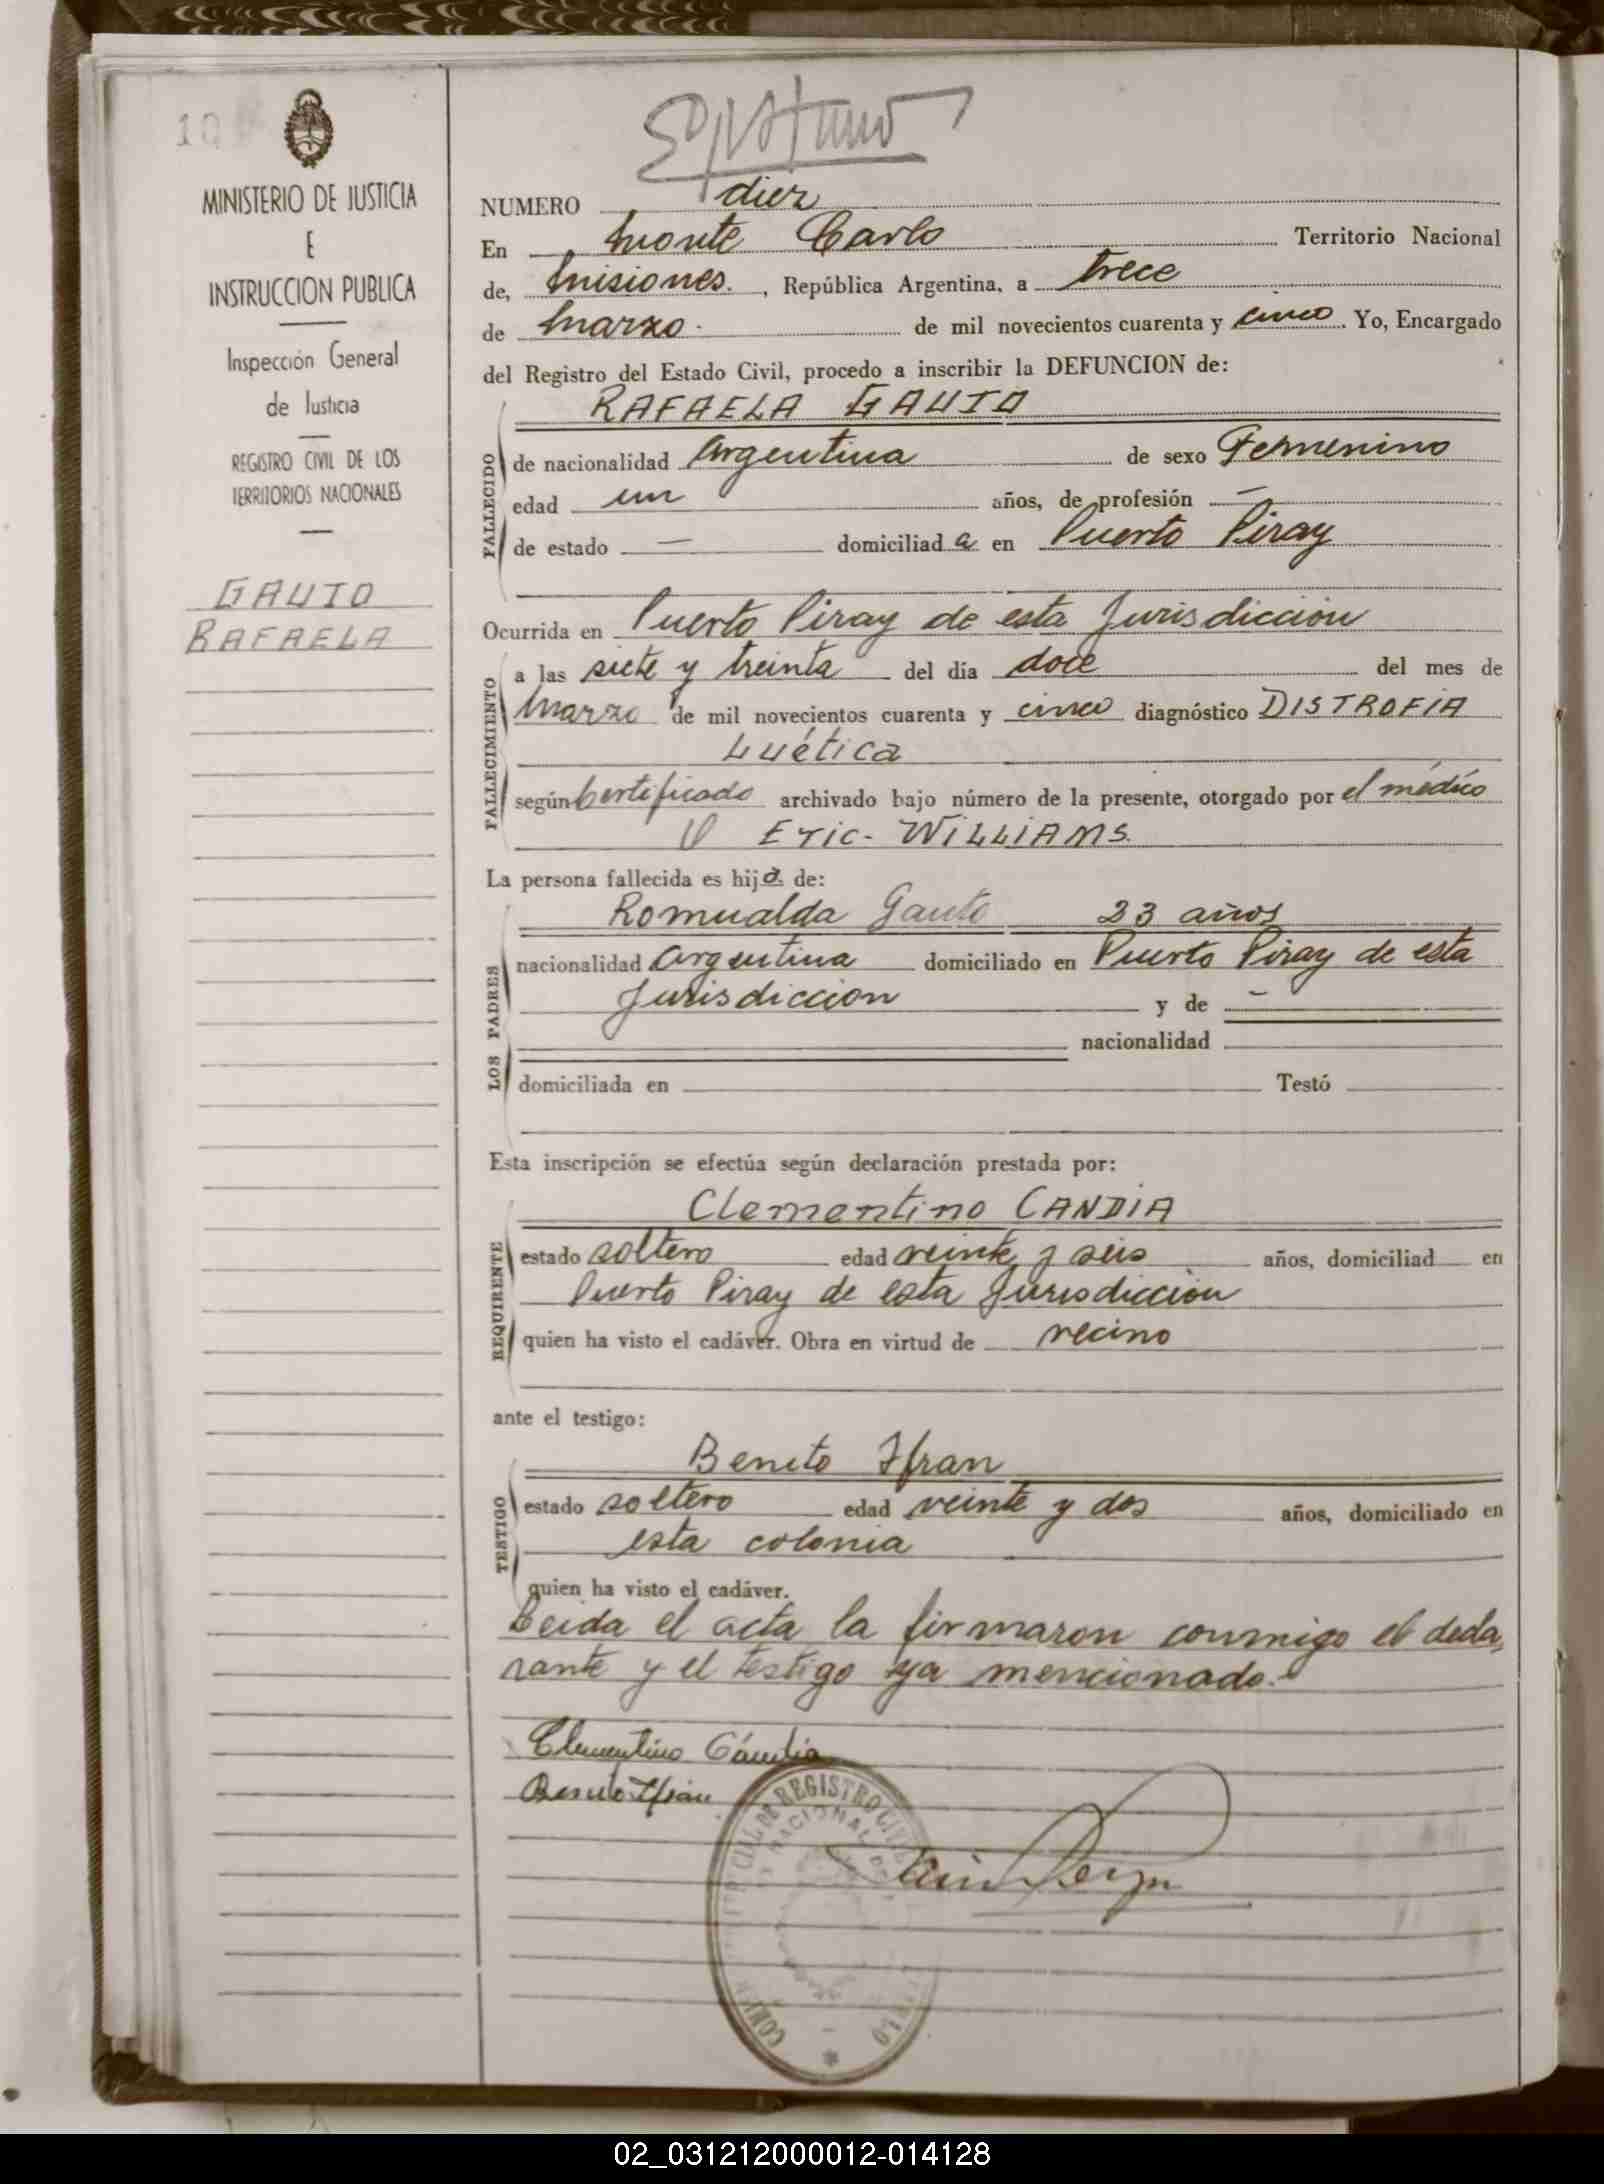 10
MINISTERIO DE JUSTICIA
E
INSTRUCCION PUBLICA
Inspección General
de Justicia
REGISTRO CIVIL DE LOS
TERRITORIOS NACIONALES
GAUTO
RAFAELA
NUMERO diez
En Monte Carlo Territorio Nacional
de, Misiones. , República Argentina, a trece
de Marzo. de mil novecientos cuarenta y cinco. Yo, Encargado
del Registro del Estado Civil, procedo a inscribir la DEFUNCION de:
RAFAELA GAUTO
FALLECIDO
de nacionalidad Argentina de sexo Femenino
edad un años, de profesión —
de estado — domiciliada en Puerto Piray
Ocurrida en Puerto Piray de esta Jurisdicción
FALLECIMIENTO
a las siete y treinta del día doce del mes de
Marzo de mil novecientos cuarenta y cinco diagnóstico DISTROFIA
Luética
según Certificado archivado bajo número de la presente, otorgado por el médico
ERIC- WILLIAMS.
La persona fallecida es hija de:
LOS PADRES
Romualda Gauto 23 años
nacionalidad Argentina domiciliado en Puerto Piray de esta
Jurisdiccion y de —
nacionalidad
domiciliada en Testó
Esta inscripción se efectúa según declaración prestada por:
REQUIRENTE
Clementino CANDIA
estado soltero edad veinte y seis años, domiciliad en
Puerto Piray de esta Jurisdicción
quien ha visto el cadáver. Obra en virtud de vecino
ante el testigo:
TESTIGO
Benito Ifran
estado soltero edad veinte y dos años, domiciliado en
esta colonia
quien ha visto el cadáver.
Leida el acta la firmaron conmigo el decla,
rante y el testigo ya mencionado.
Clementino Cándia
Benito Ifran
REGISTRO CIVIL
NACIONAL
02_031212000012-014128